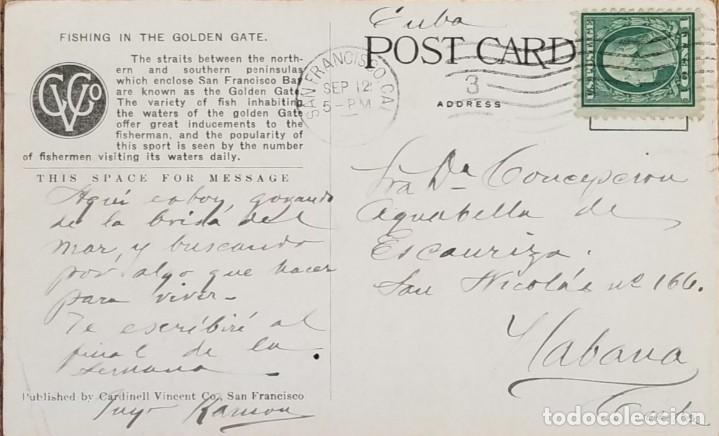 Cuba
FISHING IN THE GOLDEN GATE.
The straits between the north-
ern and southern peninsulas
which enclose San Francisco Bay
are known as the Golden Gate.
The variety of fish inhabiting
the waters of the golden Gate
offer great inducements to the
fisherman, and the popularity of
this sport is seen by the number
of fishermen visiting its waters daily.
CVCo
THIS SPACE FOR MESSAGE
Aquí estoy, gozando
de la brisa del
mar, y buscando
por algo que hacer
para vivir.
Te escribiré al
final de la
semana
Tuyo Ramon
Published by Cardinell Vincent Co., San Francisco
POST CARD
SAN FRANCISCO, CAL
SEP 12
5-PM
3
ADDRESS
U.S. POSTAGE
Sra Da Concepcion
Aguabella de
Escauriza.
San Nicolás nº 166.
Habana
Cuba
todocoleccion